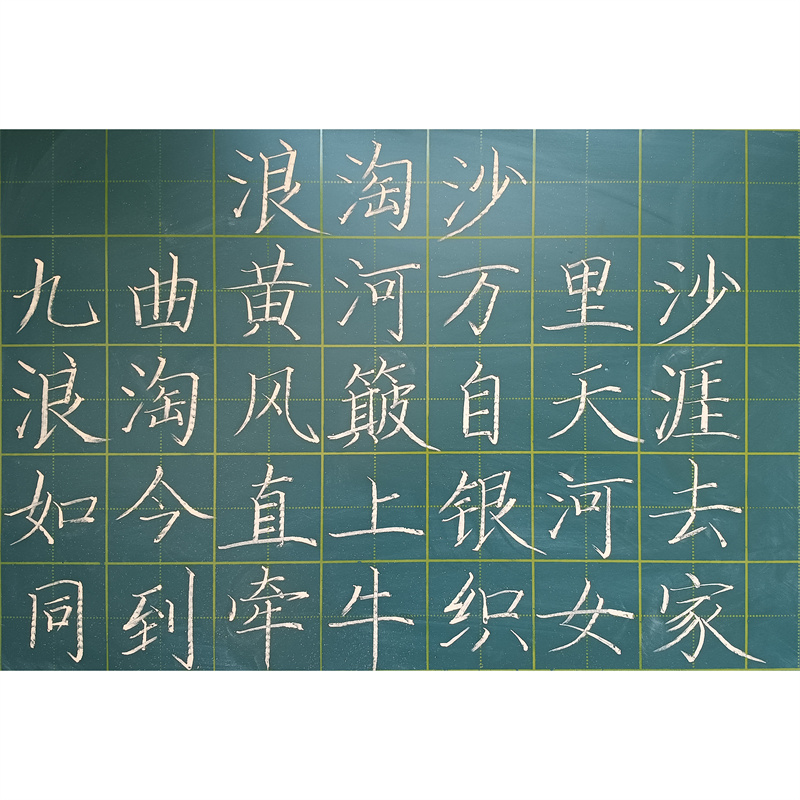 浪淘沙
九曲黄河万里沙
浪淘风簸自天涯
如今直上银河去
同到牵牛织女家